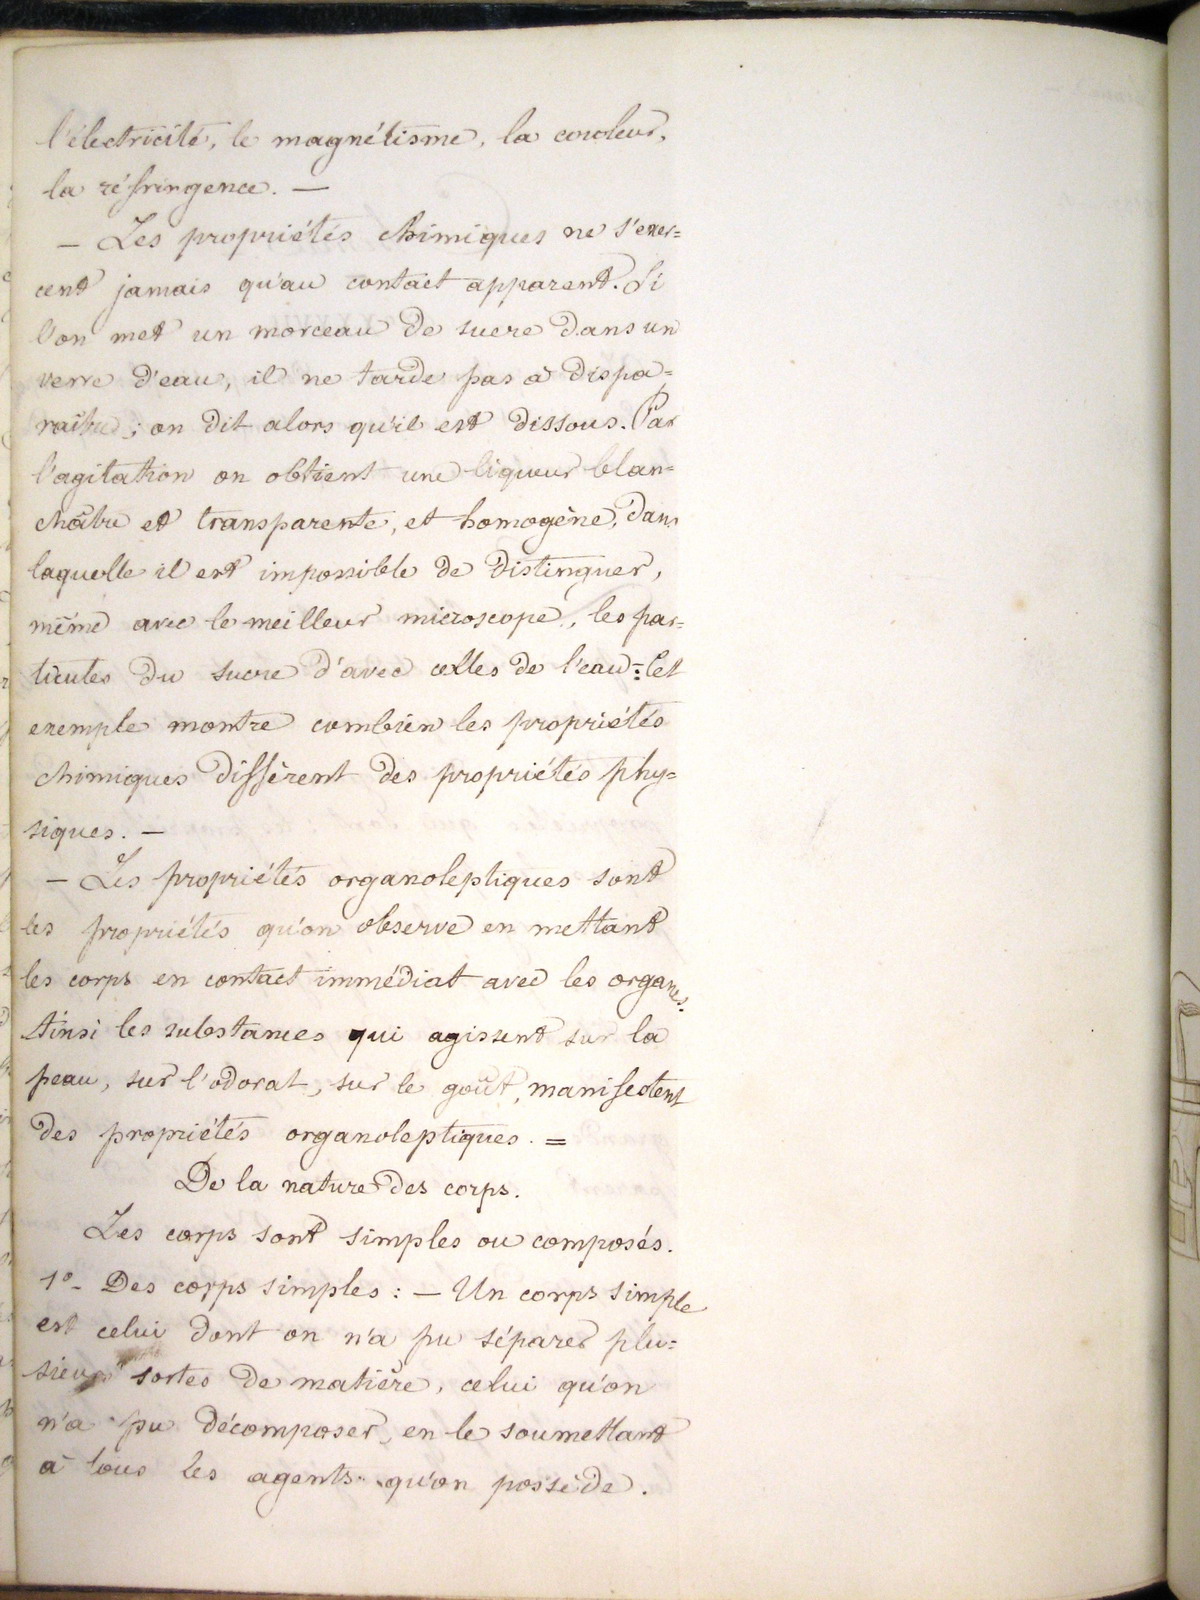 l'électricité, le magnétisme, la couleur,
la réfringence. —
— Les propriétés chimiques ne s'exer=
cent jamais qu'au contact apparent. Si
l'on met un morceau de sucre dans un
verre d'eau, il ne tarde pas à dispa=
raître; on dit alors qu'il est dissous. Par
l'agitation on obtient une liqueur blan=
châtre et transparente, et homogène, dans
laquelle il est impossible de distinguer,
même avec le meilleur microscope, les par=
ticules du sucre d'avec celles de l'eau = Cet
exemple montre combien les propriétés
chimiques diffèrent des propriétés phy=
siques. —
— Les propriétés organoleptiques sont
les propriétés qu'on observe en mettant
les corps en contact immédiat avec les organes.
Ainsi les substances qui agissent sur la
peau, sur l'odorat, sur le goût, manifestent
des propriétés organoleptiques. =
De la nature des corps.
Les corps sont simples ou composés.
1º- Des corps simples : — Un corps simple
est celui dont on n'a pu séparer plu=
sieurs sortes de matière, celui qu'on
n'a pu décomposer, en le soumettant
à tous les agents qu'on possède.